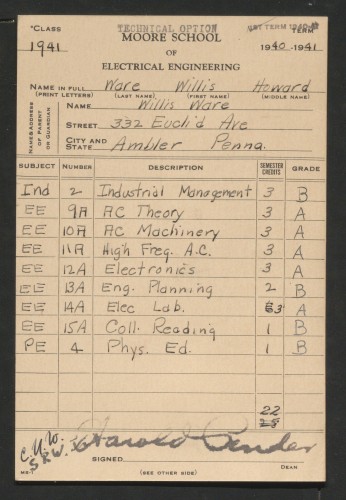 "CLASS TECHNICAL OPTION 1ST TERM 1940-41 TERM
1941 MOORE SCHOOL 1940-1941
OF
ELECTRICAL ENGINEERING
NAME IN FULL Ware Willis Howard
(PRINT LETTERS) (LAST NAME) (FIRST NAME) (MIDDLE NAME)
NAME & ADDRESS OF PARENT OR GUARDIAN
NAME Willis Ware
STREET 332 Euclid Ave
CITY AND STATE Ambler Penna.
SUBJECT NUMBER DESCRIPTION SEMESTER CREDITS GRADE
Ind 2 Industrial Management 3 B
EE 9A AC Theory 3 A
EE 10A AC Machinery 3 A
EE 11A High Freq. A.C. 3 A
EE 12A Electronics 3 A
EE 13A Eng. Planning 2 B
EE 14A Elec Lab. 3 A
EE 15A Coll. Reading 1 B
PE 4 Phys. Ed. 1 B
22
C.N.W.
S.R.W. Harold Pender
SIGNED DEAN
MS-1 (SEE OTHER SIDE)